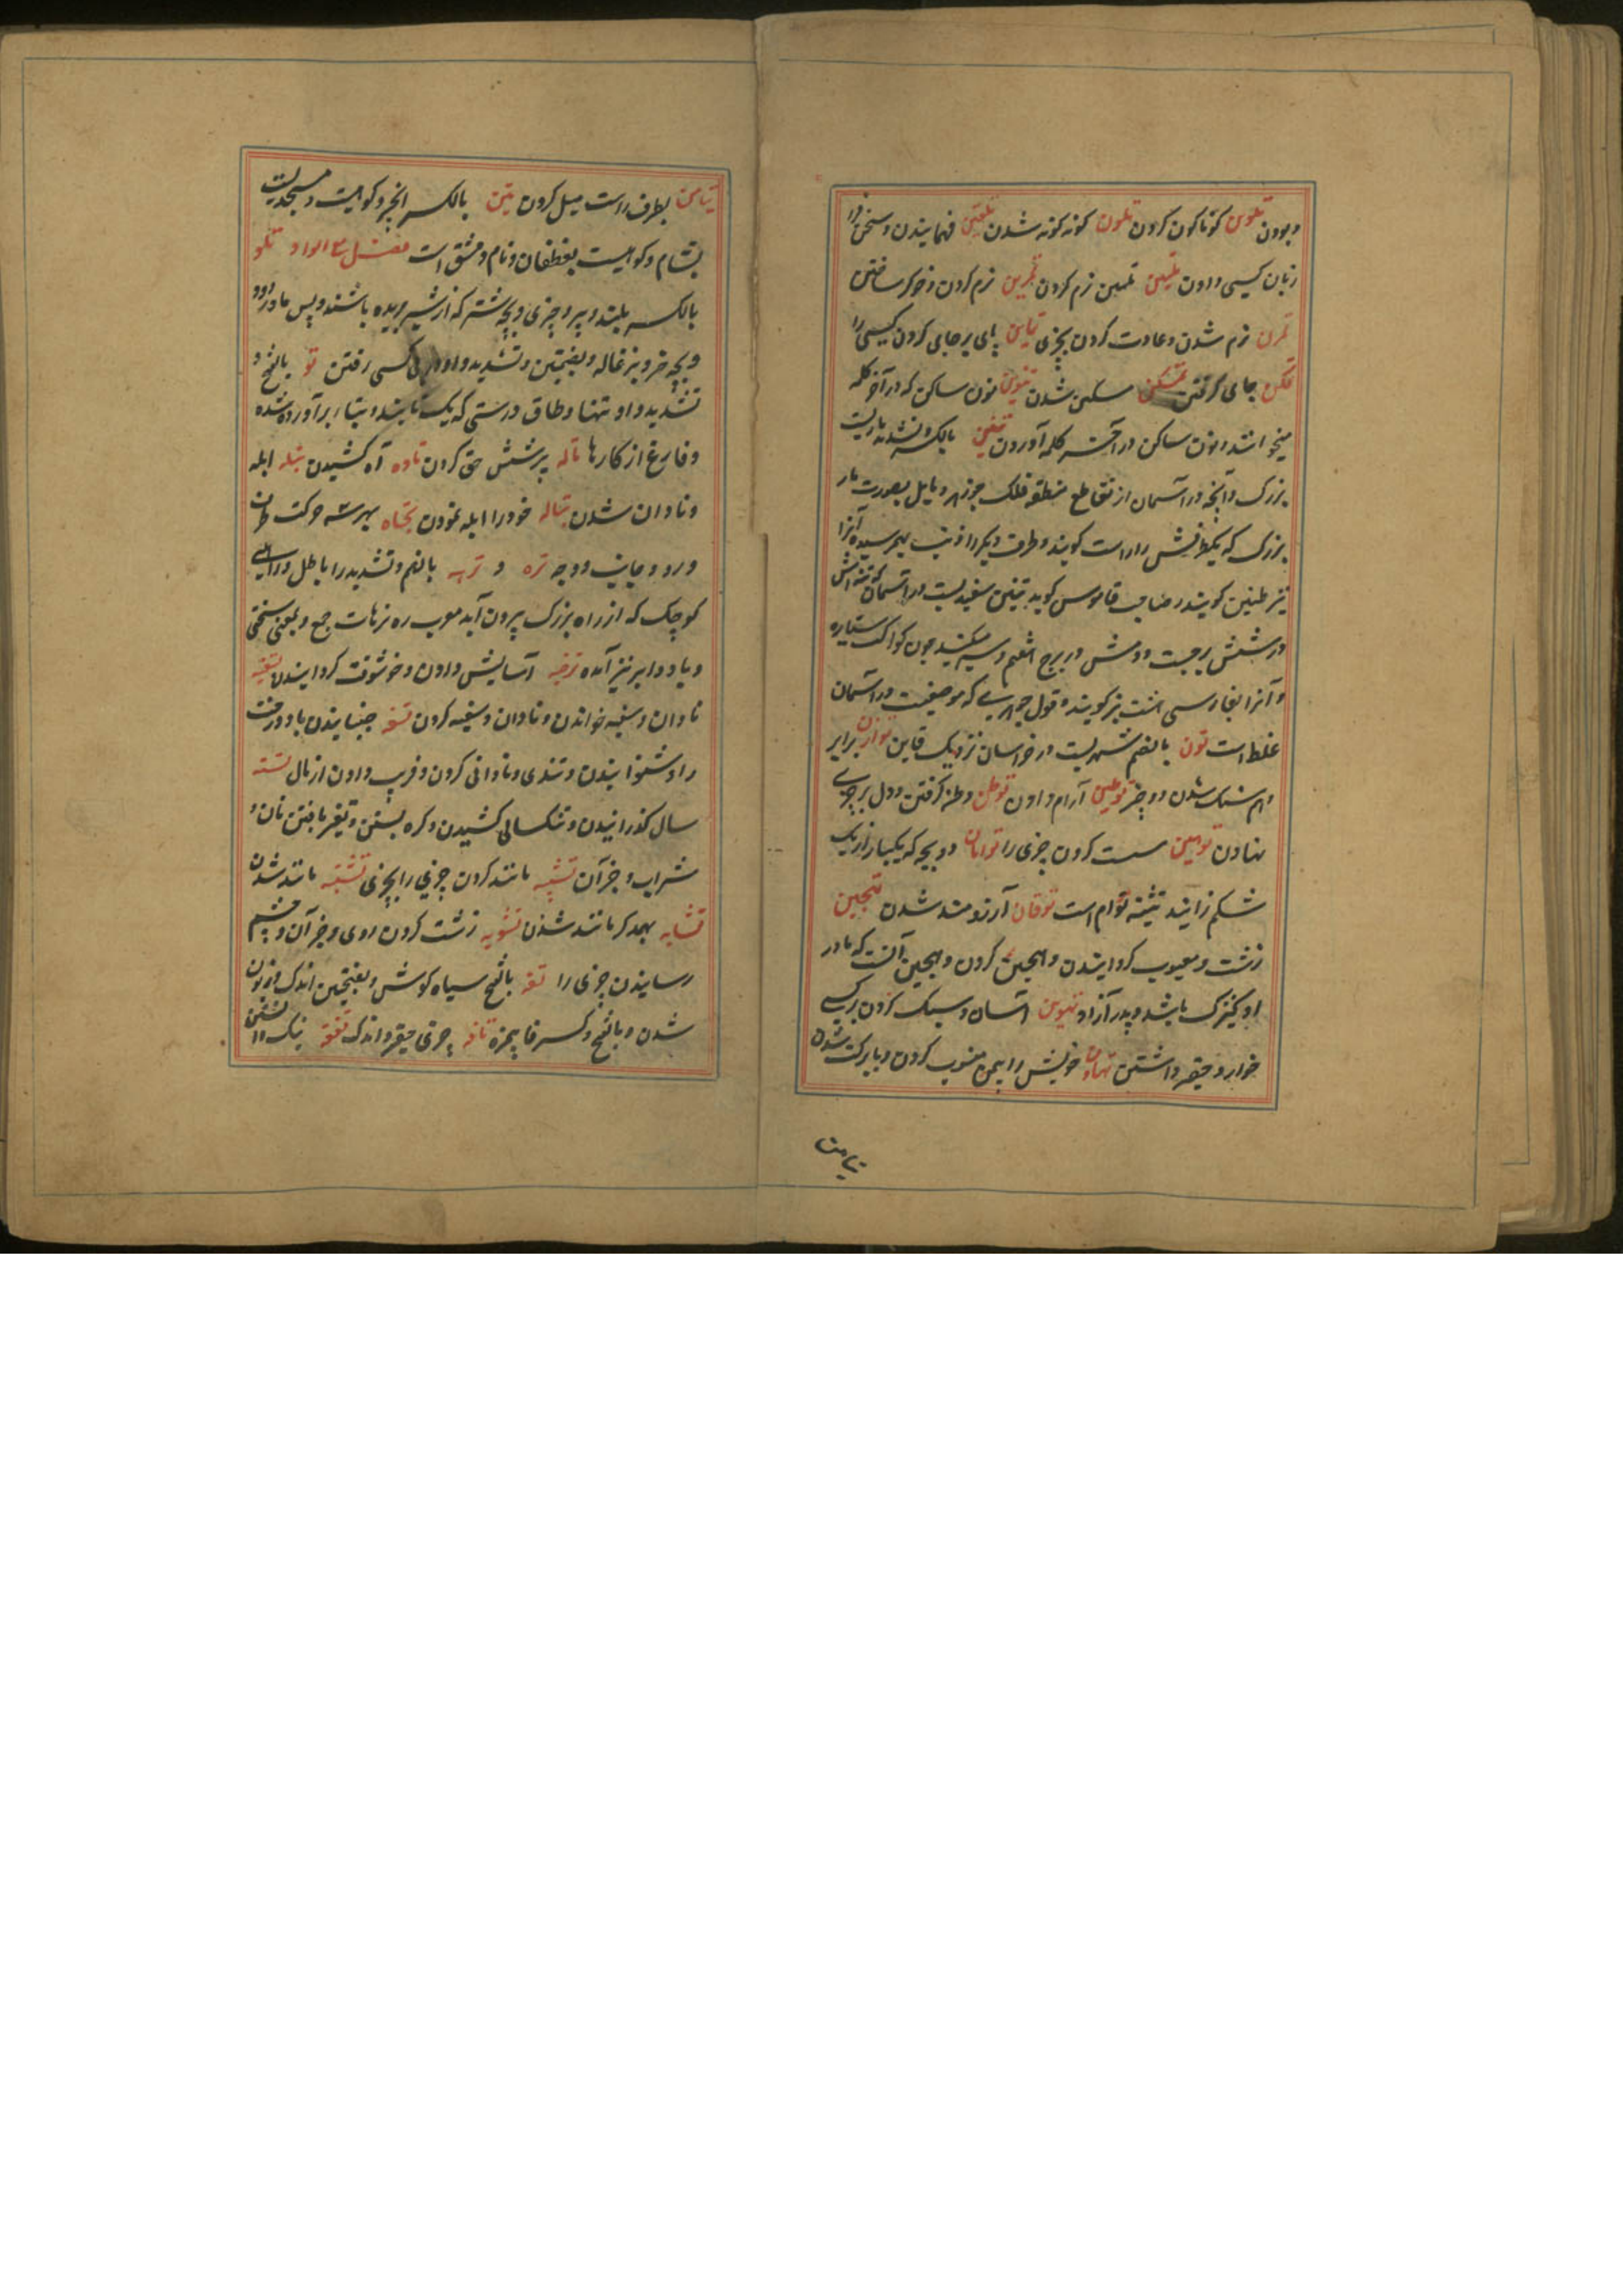 و بودن تلوین کوناکون کردن تلون کونه کونه شدن تلقین فهمانیدن و سخن در
زبان کسی دادن تلیین نرم کردن تمرین نرم کردن و خوکر ساختن
تمرن نرم شدن و عادت کردن بچیزی پای برجای کردن کسی را
تمکن جای کرفتن تمسکن مسکین شدن تنوین نون ساکن که در آخر کلمه
میخوانند و نون ساکن در آخر کلمه آوردن تنین بالکسر و تشدید ماریست
بزرک و آنچه در آسمان از تقاطع منطقه فلک جوزهر و مایل بصورت مار
بزرک که یکطرفش را راس کویند و طرف دیکر را ذنب بهم رسیده آنرا
نیز طنین کویند و صاحب قاموس کوید تنین سفیدیست در آسمان که تنه اش
در شش برجست و دمش در برج هفتم و سیر میکند چون کواکب سیاره
و آنرا بفارسی هشت بر کویند و قول جوهری که موضعیست در آسمان
غلط است تون بالضم شهریست در خراسان نزدیک قاین توازن برابر
و هم سنک شدن دو چیز توطین آرام دادن توطن وطن کرفتن و دل بر چیزی
نهادن توهین سست کردن چیزی را توامان دو بچه که یکبار از یک
شکم زایند تثنیه توام است توقان آرزومند شدن تهجین
زشت و معیوب کردانیدن و هجین کردن و هجین آنست که مادر
او کنیزک باشد و پدر آزاد تهوین آسان و سبک کردن بر کسی
خوار و حقیر داشتن تیمن خویش را بیمن منسوب کردن و بابرکت شدن
تیامن
تیامن بطرف راست میل کردن تین بالکسر انجیر و کوهیست و مسجدیست
بشام و کوهیست بغطفان و نام دمشق است فصل مع الواو تلو
بالکسر بلند و پیرو چیزی و بچه شتر که از شیر بریده باشند و پس مادر رود
و بچه خر و بزغاله و بضمتین و تشدید واو از پی کسی رفتن تو بالفتح و
تشدید واو تنها و طاق و رسنی که یک تا بتابند و بنای برآورده شده
و فارغ از کارها تاله پرستش حق کردن تاوه آه کشیدن تبله ابله
و نادان شدن تباله خود را ابله نمودن تجاه بهر سه حرکت طرف
و رو و جانب و وجه تره و ترهه بالضم و تشدید را باطل و راهی
کوچک که از راه بزرک بیرون آید معرب ره ترهات جمع و بمعنی سختی
و باد و ابر نیز آمده ترفیه آسایش دادن و خوشوقت کردانیدن تسفیه
نادان و سفیه خواندن و نادان و سفیه کردن تسفه جنبانیدن باد درخت
را و شنوانیدن و تندی و نادانی کردن و فریب دادن از مال تسنه
سال کذرانیدن و تنکسالی کشیدن و کره بستن و تغیر یافتن نان و
شراب و جز آن تشبیه مانند کردن چیزی را بچیزی تشبه مانند شدن
تشابه بهمدکر مانند شدن تشویه زشت کردن روی و جز آن و چشم
رسانیدن چیزی را تفه بالفتح سیاه کوش و بفتحتین اندک و زبون
شدن و بالفتح و کسر فا بیمزه تافه چیزی حقیر و اندک تفقه نیک دانستن